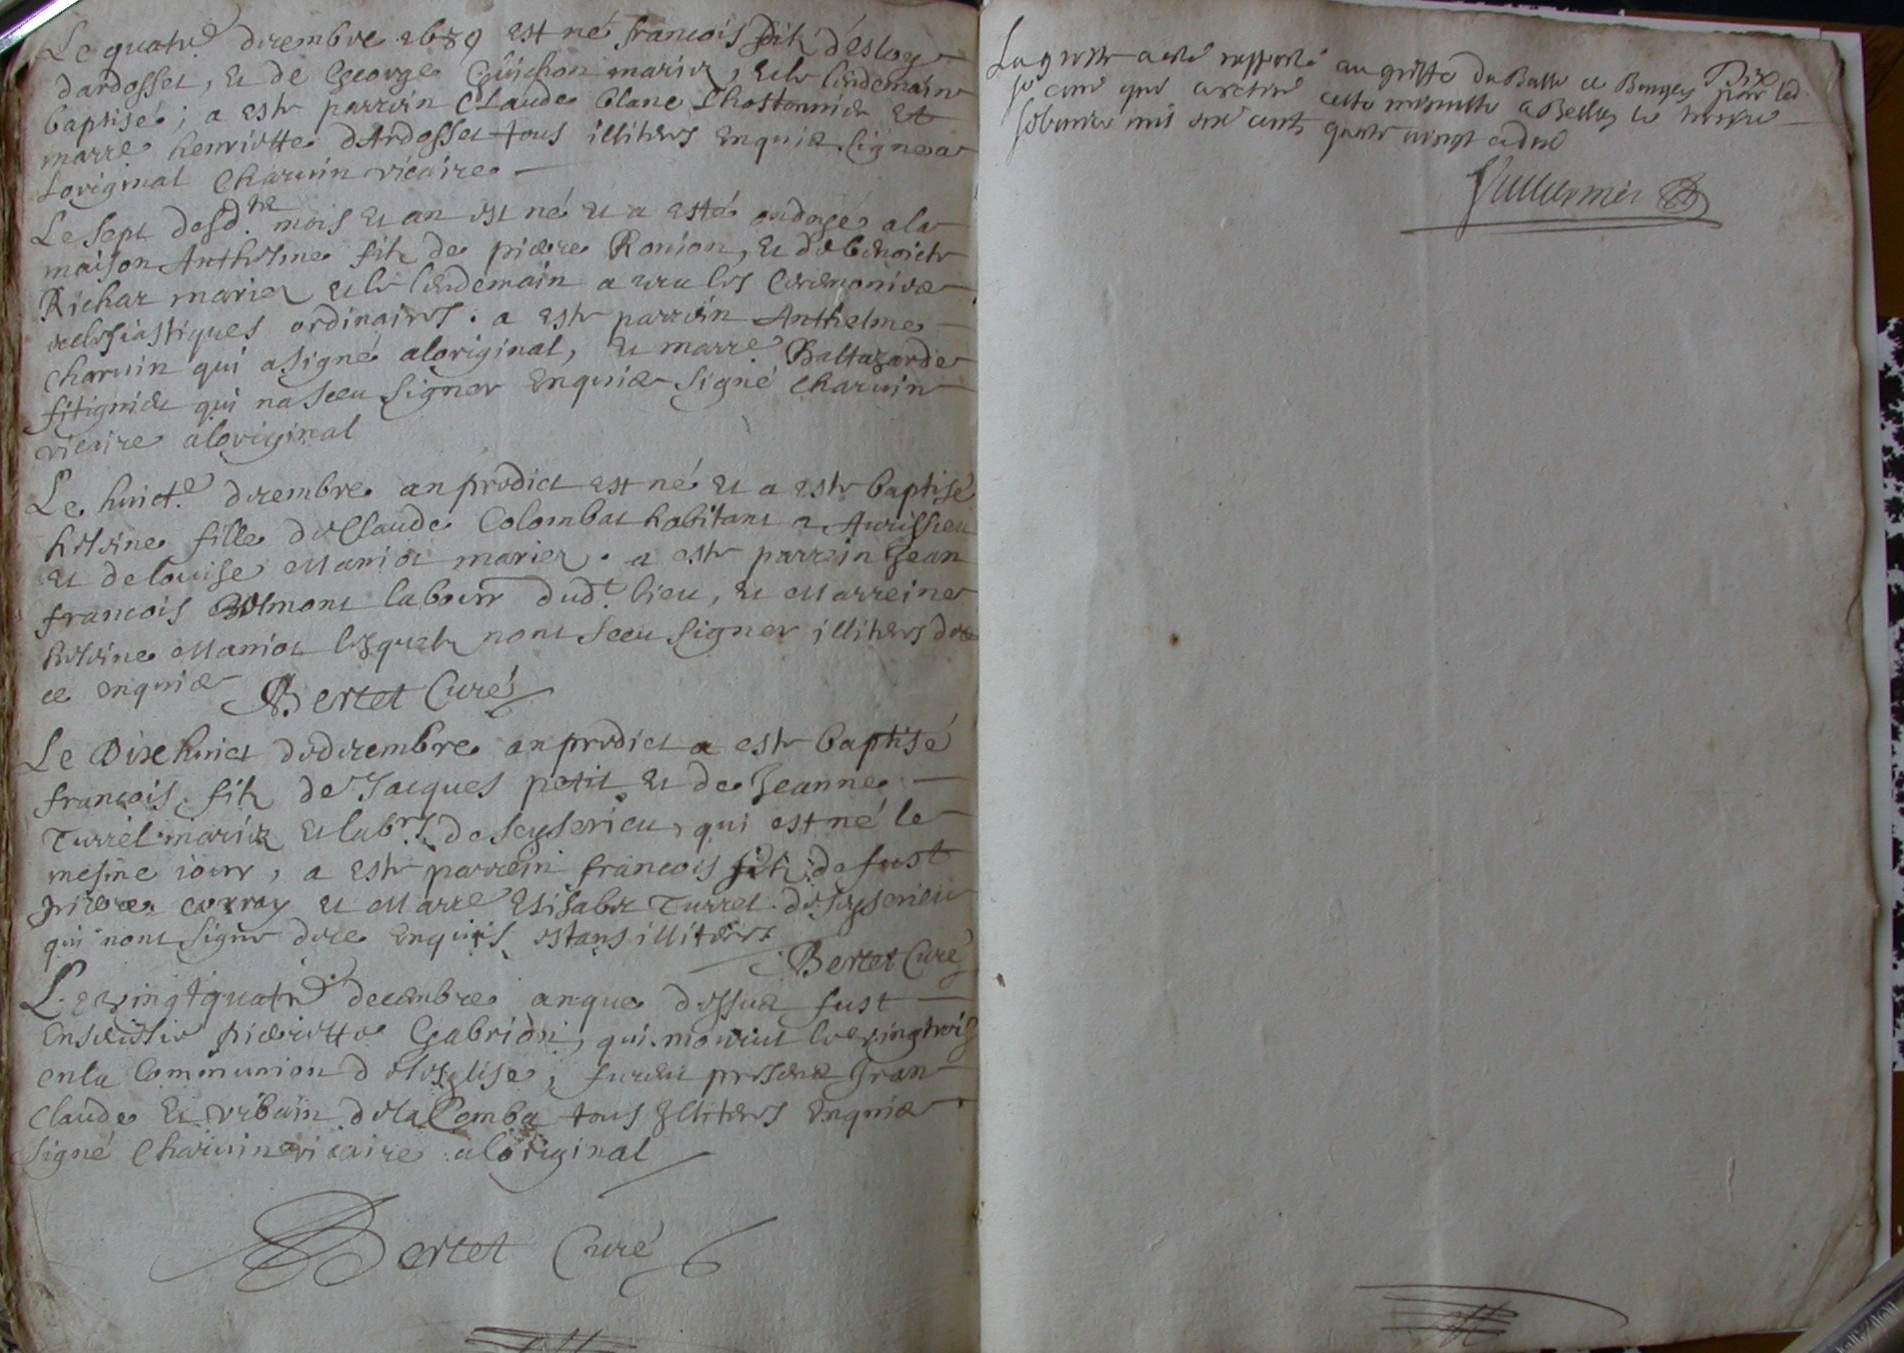 Le quatre decembre 1689 est né francois filz d'esloy
dardosset, et de George Guichon mariez, et le lendemain
baptisé; a este parrein Claude blanc Chastonnier et
marre henriette d'Ardosset tous illiters enquis signe a
loriginal Charuin vicaire
Le sept desd. mois et an est né et a esté ondoyé a la
maison Anthelme filz de pierre Ronion, et de benoicte
Richar mariez et le lendemain a receu les ceremonies
eclesiastiques ordinaires. a este parrein Anthelme
Charuin qui a signé a loriginal, et marre Baltazarde
fitignier qui na sceu signer enquise signé Charuin
vicaire a loriginal
Le huict.e decembre an predict est né et a este baptisé
fille de Claude Colombat habitant a Aurissieu
et de louise Maniot mariez. a este parrein Jean
francois Belmont labour dud.t lieu, et Marreine
Maniot lesquelz nont sceu signer illiters de
ce enquis Bertet Curé
Le Dixe huict de decembre an predict a este baptisé
francois filz de Jacques petit et de Jeanne
Turrel mariez et lab.rs de seyserieu, qui est né le
mesme iour, a este parrein francois filz de fust
pierre corray et Marre Elisabet Turrel de seyserieu
qui nont signe de ce enquis estans illiters
Bertet Curé
Le vingt quatre decembre an que dessus fust
ensevelie pierrette Gabrion, qui mourut le vingt trois
en la Communion de leglise, furent presens Jean
Claude et vrbain de la Comba tous Illiters enquis
signé Charuin vicaire a loriginal
Bertet Curé
La grosse a esté rapporté au greffe du Balle de Bugey par led.
sr curé qui a retiré cette minutte a Belley le
mil six cents quatre vingt et dix